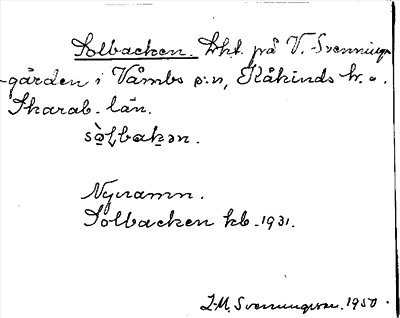 Solbacken. Lht. på V. Svennings-
gården i Våmbs s:n, Kåkinds hd.
Skarab. län.
sò̠lbak̠ən.
Nynamn.
Solbacken kb. 1931.
I-M. Svenningsson. 1950.